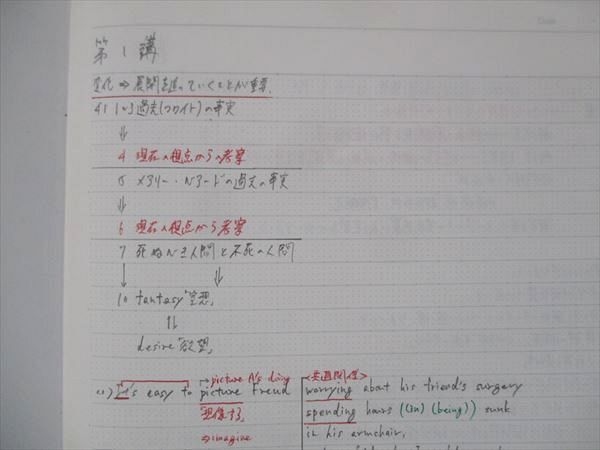 第1講
変化⇒展開を追っていくことが重要。
¶1 1~3 過去(フロイト)の事実
⇓
4 現在の視点からの考察
5 メアリー・Nアードの過去の事実
⇓
6 現在の視点から考察
7 死ぬべき人間と不死の人間
↓ ⇓
10 fantasy「空想」
⇅
desire「欲望」
→picture A's doing <共通関係>
(1) It's easy to picture Freud worrying about his friend's surgery
「想像する」 spending hours ((in) (being)) sunk
⇒imagine in his armchair,